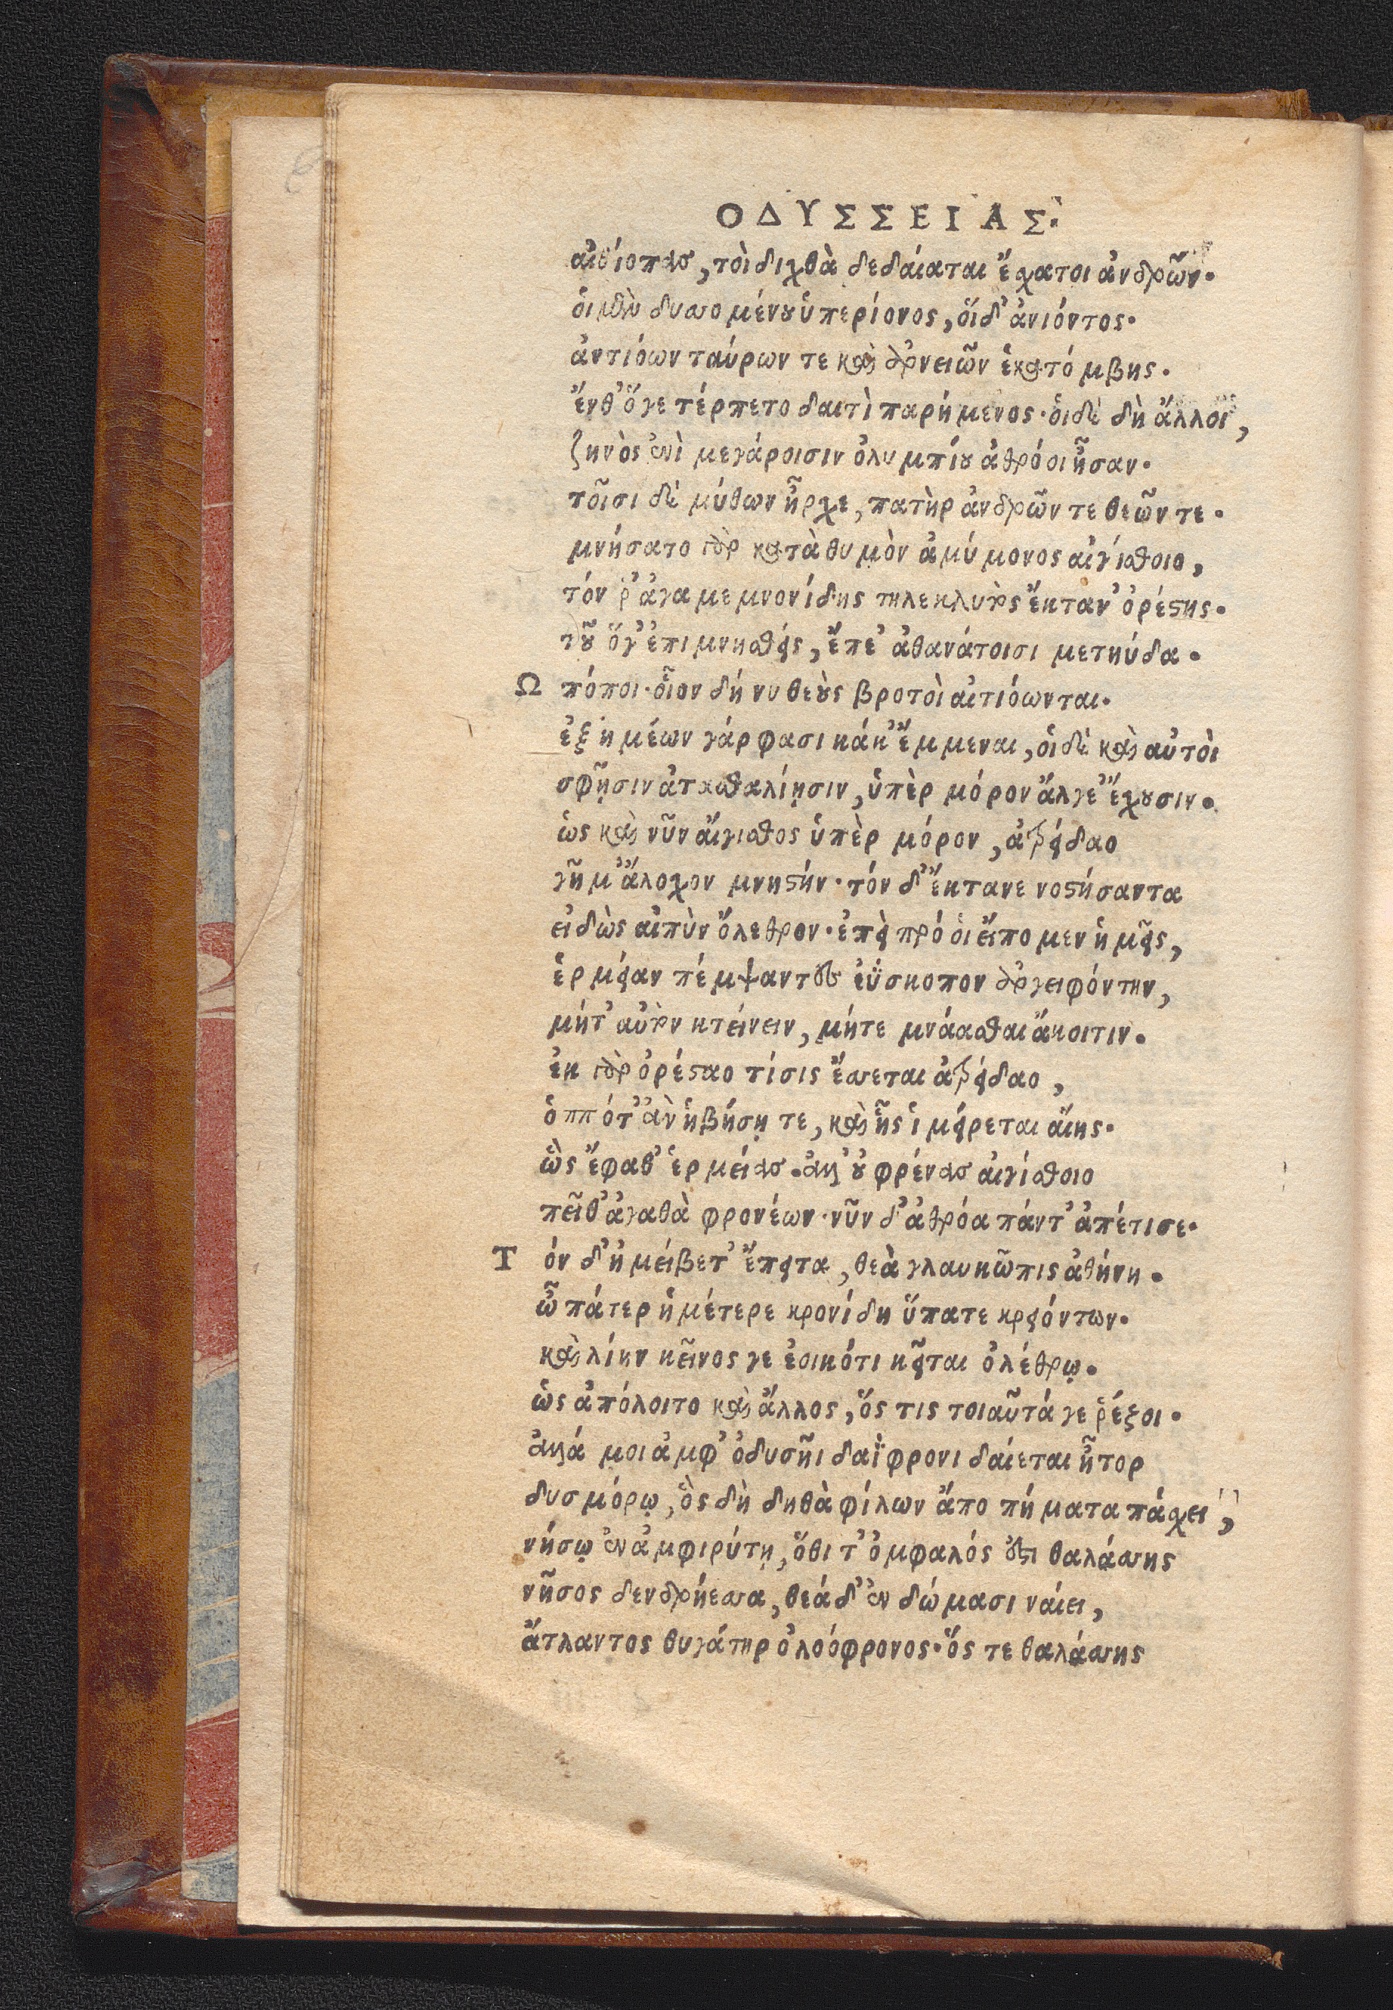 ΟΔΥΣΣΕΙΑΣ.
αἰθίοπας, τοὶ διχθὰ δεδαίαται ἔχατοι ἀνδρῶν.
οἱ μὲν δυσομένου ὑπερίονος, οἵδ' ἀνιόντος.
ἀντιόων ταύρων τε καὶ ἀρνειῶν ἑκατόμβης.
ἔνθ' ὅγε τέρπετο δαιτὶ παρήμενος. οἱ δὲ δὴ ἄλλοι,
ζηνὸς ἐνὶ μεγάροισιν ὀλυμπίου ἀθρόοι ἦσαν.
τοῖσι δὲ μύθων ἦρχε, πατὴρ ἀνδρῶν τε θεῶν τε.
μνήσατο γὰρ κατὰ θυμὸν ἀμύμονος αἰγίσθοιο,
τόν ῥ' ἀγαμεμνονίδης τηλεκλυτὸς ἔκταν' ὀρέστης.
τοῦ ὅγ' ἐπιμνησθείς, ἔπε' ἀθανάτοισι μετηύδα.
Ω πόποι. οἷον δή νυ θεοὺς βροτοὶ αἰτιόωνται.
ἐξ ἡμέων γάρ φασι κάκ' ἔμμεναι, οἱ δὲ καὶ αὐτοὶ
σφῇσιν ἀτασθαλίῃσιν, ὑπὲρ μόρον ἄλγε' ἔχουσιν.
ὡς καὶ νῦν αἴγισθος ὑπὲρ μόρον, ἀτρείδαο
γῆμ' ἄλοχον μνηστήν. τόν δ' ἔκτανε νοστήσαντα
εἰδὼς αἰπὺν ὄλεθρον. ἐπεὶ πρό οἱ εἴπομεν ἡμεῖς,
ἑρμείαν πέμψαντες ἐΰσκοπον ἀργειφόντην,
μήτ' αὐτὸν κτείνειν, μήτε μνάασθαι ἄκοιτιν.
ἐκ γὰρ ὀρέσταο τίσις ἔσσεται ἀτρείδαο,
ὁππότ' ἂν ἡβήσῃ τε, καὶ ἧς ἱμείρεται αἴης.
ὣς ἔφαθ' ἑρμείας. ἀλλ' οὐ φρένας αἰγίσθοιο
πεῖθ' ἀγαθὰ φρονέων. νῦν δ' ἀθρόα πάντ' ἀπέτισε.
Τ όν δ' ἠμείβετ' ἔπειτα, θεὰ γλαυκῶπις ἀθήνη.
ὦ πάτερ ἡμέτερε κρονίδη ὕπατε κρειόντων.
καὶ λίην κεῖνος γε ἐοικότι κεῖται ὀλέθρῳ.
ὡς ἀπόλοιτο καὶ ἄλλος, ὅς τις τοιαῦτά γε ῥέξοι.
ἀλλά μοι ἀμφ' ὀδυσῆι δαΐφρονι δαίεται ἦτορ
δυσμόρῳ, ὃς δὴ δηθὰ φίλων ἄπο πήματα πάχει,
νήσῳ ἐν ἀμφιρύτῃ, ὅθι τ' ὀμφαλός ἐστι θαλάσσης
νῆσος δενδρήεσσα, θεά δ' ἐν δώμασι ναίει,
ἄτλαντος θυγάτηρ ὀλοόφρονος. ὅς τε θαλάσσης